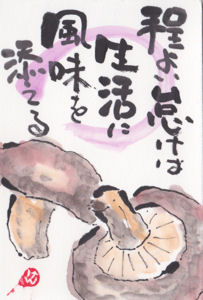 程よい怠けは
生活に
風味を
添える